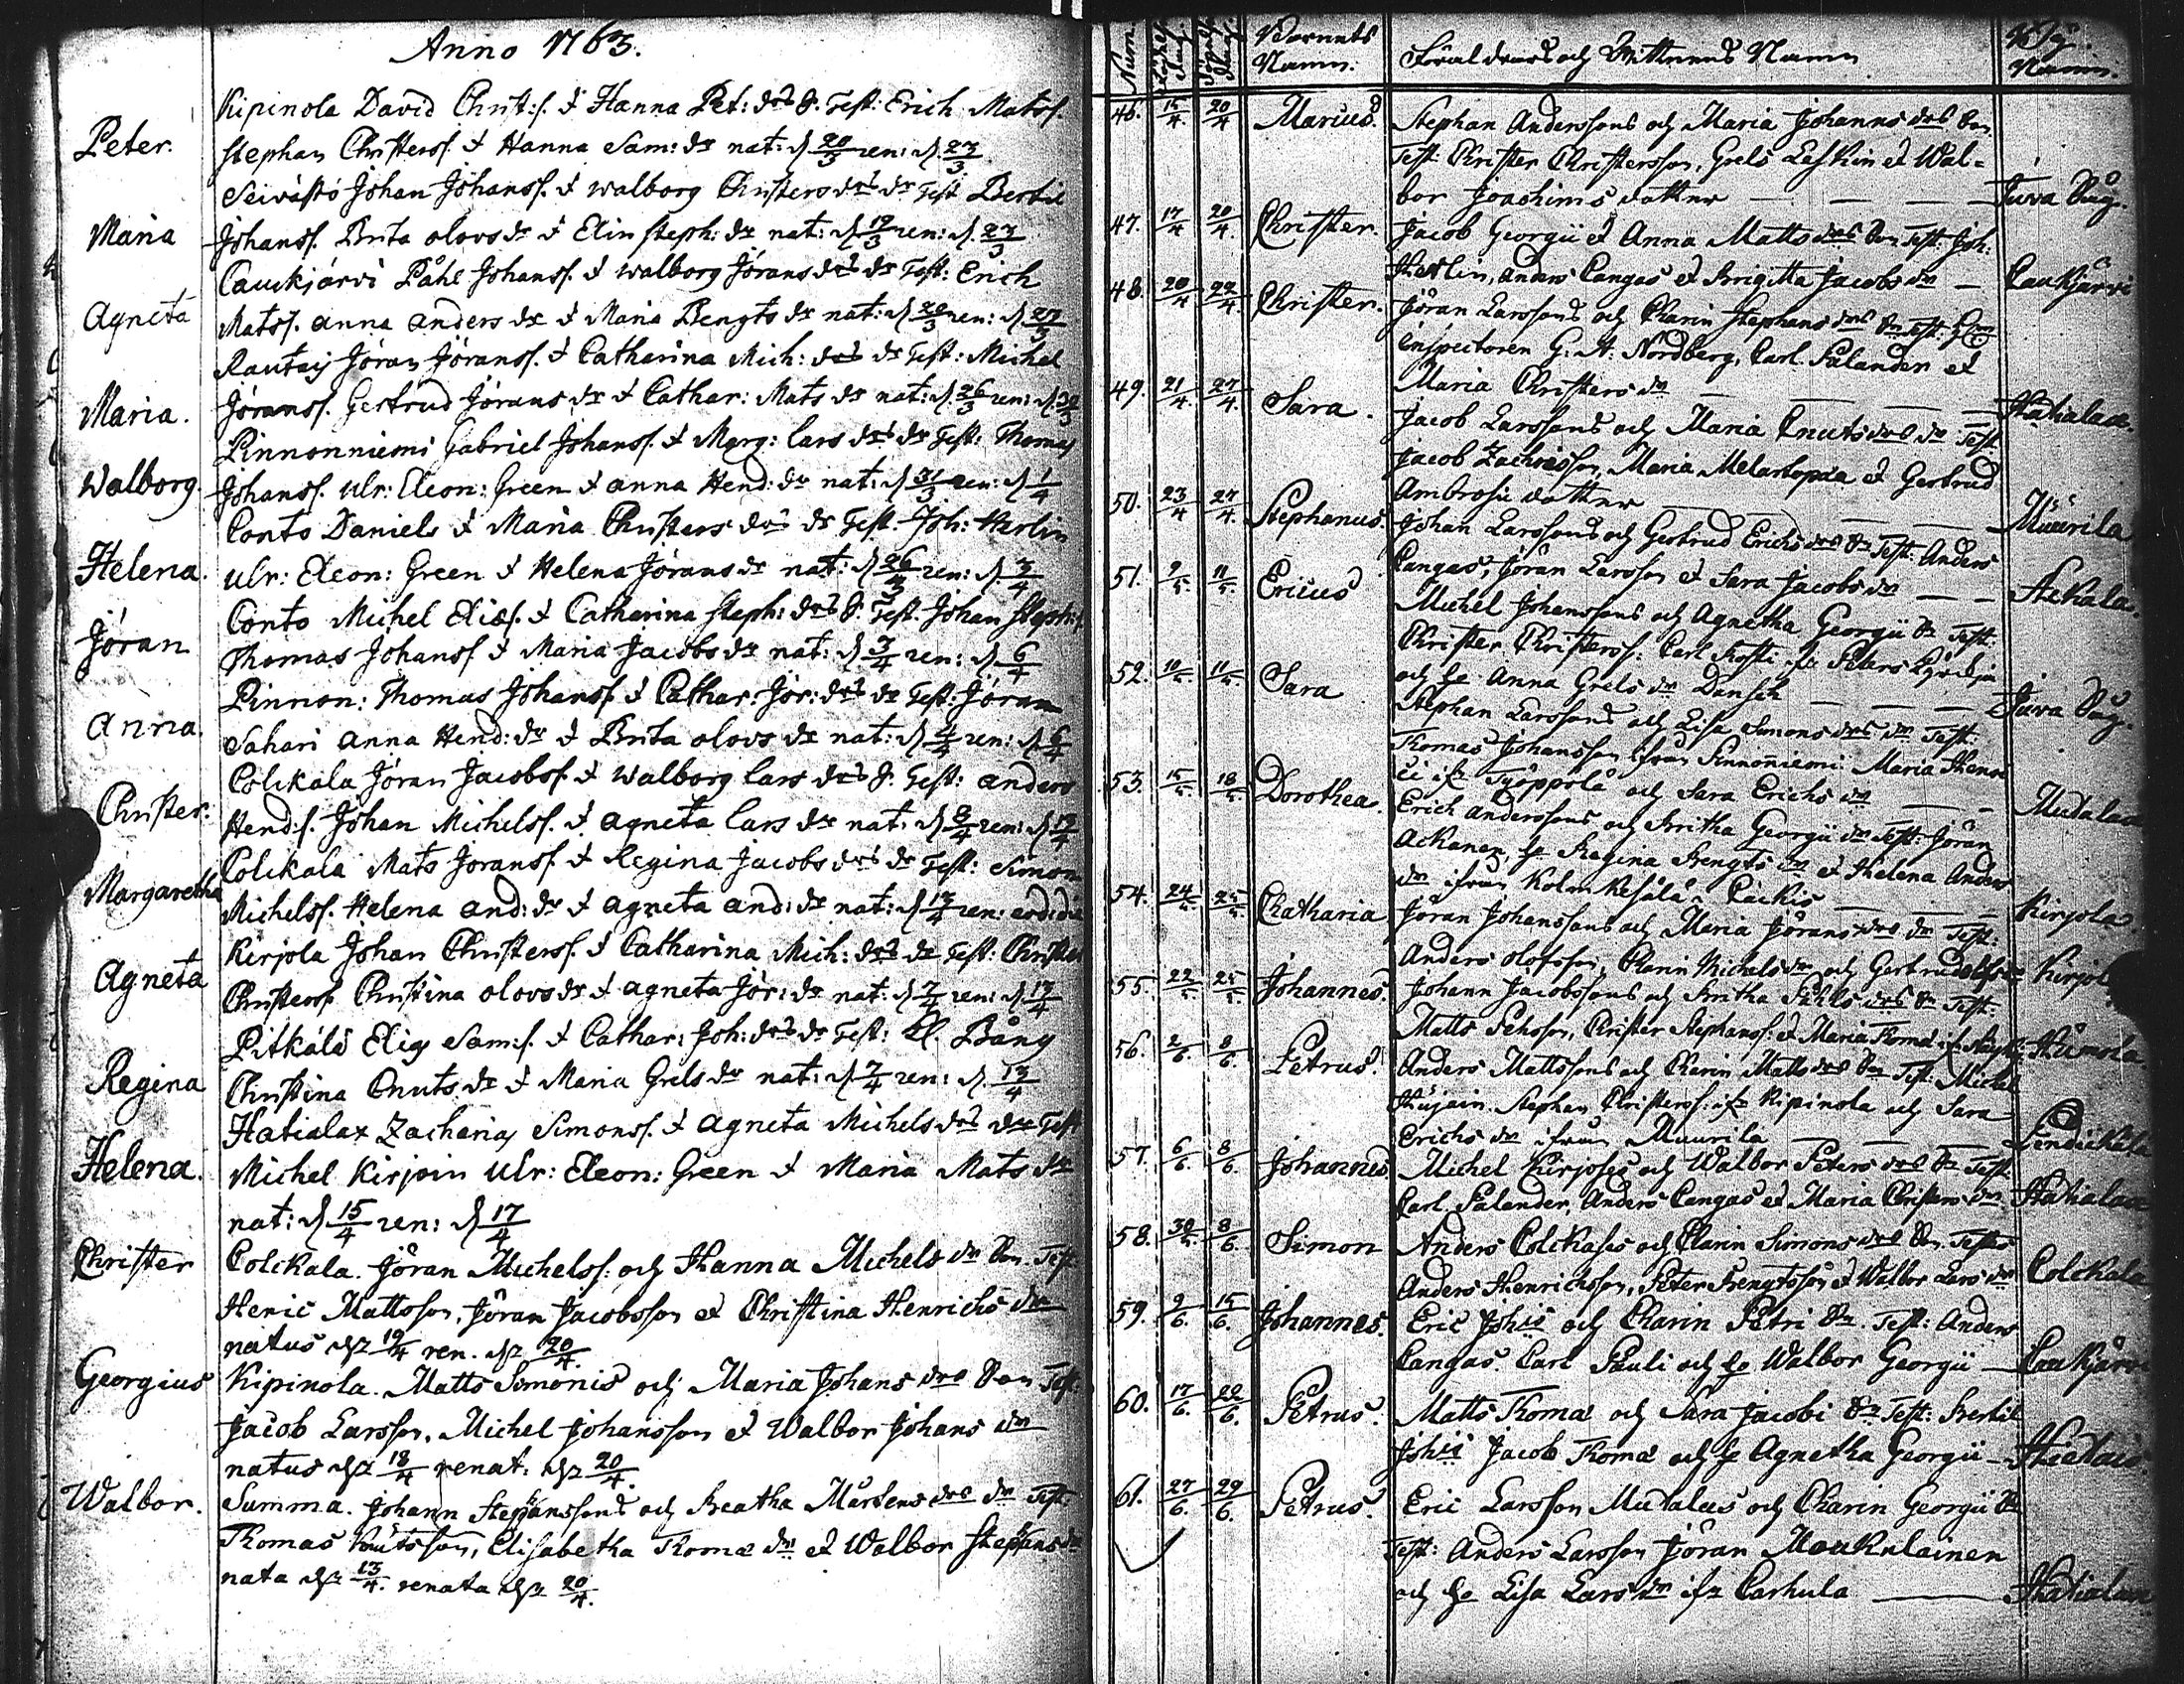 Anno 1763.
Peter. Kipinola David Christ:s. & Hanna Pet: drs d. Test: Erich Matss.
Stephan Christerss. & Hanna Sam: dr nat: d 20/3 ren: d. 27/3
Maria Seivästö Johan Johanss. & Walborg Christers drs dr Test Bertil
Johanss. Brita Olovs dr & Elin Steph: dr nat: d 19/3 ren: d. 27/3
Agneta Caukjärvi Påhl Johanss. & Walborg Jörans drs dr Test: Erich
Matss. Anna Anders dr & Maria Bengts dr nat: d 20/3 ren: d 27/3
Maria. Jöran Jöranss. & Catharina Mich: drs dr Test: Michel
Jöranss. Gertrud Jörans dr & Cathar: Mats dr nat: d. 26/3 ren: d. 30/3
Walborg. Pinnonniemi Gabriel Johanss. & Marg: Lars drs dr Test: Thomas
Johanss. Ulr: Eleon: Green & Anna Hend: dr nat: d 31/3 ren: d 1/4
Helena. Conto Daniels & Maria Christers drs dr Test. Joh: Herlin
Ulr: Eleon: Green & Helena Jörans dr nat: d 26/3 ren: d 3/4
Jöran Conto Michel Elias. & Catharina Steph: drs d. Test. Johan Steph:s.
Thomas Johanss & Maria Jacobs dr nat: d 3/4 ren: d 6/4
Anna. Pinnon: Thomas Johanss. & Cathar: Jör: drs dr Test: Jöran
Sahari Anna Hend: dr & Brita Olovs dr nat: d 4/4 ren: d 6/4
Christer. Colckala Jöran Jacobss. & Walborg Lars drs d. Test: Anders
Hend:s. Johan Michelss. & Agneta Lars dr nat: d 8/4 ren: d 13/4
Margaretha Colckala Mats Jöranss. & Regina Jacobs drs dr Test: Simon
Michelss. Helena And: dr & Agneta And: dr nat: d 13/4 ren: eod: die
Agneta Kirjola Johan Christerss. & Catharina Mich: drs dr Test: Christer
Christerss. Christina Olovs dr & Agneta Jör: dr nat: d 7/4 ren: d 17/4
Regina Pitkälä Elias Sam:s. & Cathar: Joh: drs dr Test: Cl. Bång
Christina Cnuts dr & Maria Grels dr nat: d. 7/4 ren: d. 13/4
Helena. Hatialax Zacharias Simonss. & Agneta Michels drs dr Test
Michel Kirjoin Ulr: Eleon: Green & Maria Mats dr
nat: d 15/4 ren: d 17/4
Christer Colckala. Jöran Michelss: och Hanna Michels dr Son. Test
Heric Mattsson, Jöran Jacobsson et Christina Henrichs dr
natus 19/4 ren. 20/4.
Georgius Kipinola. Matts Simonis och Maria Johans drs Son Test:
Jacob Larsson, Michel Johansson et Walbor Johans dr
natus 18/4 renat: 20/4.
Walbor. Summa. Johann Stephanssons och Beatha Mårtens drs dr Test:
Thomas Knutsson, Elisabetha Thomæ dr et Walbor Stephans dr
nata 13/4. renata 20/4.
Num. Barnets Namn. Föräldrars och Wittnens Namn By Namn.
46. 15/4. 20/4 Marius. Stephan Anderssons och Maria Johanns drs Son
Test: Christer Christersson, Grels Leskin et Wal=
bor Joachims dotter — — — Juva By.
47. 17/4 20/4. Christer. Jacob Georgii et Anna Matts drs Son Test: Joh:
Herlin, Anders Cangas et Brigitta Jacobs dr — Caukjärvi
48. 20/4 22/4. Christer. Jöran Larssons och Charin Stephans drs Son Test:
Inspectoren G: A: Nordberg, Carl Salander et
Maria Christers dr — — — Hatialax.
49. 21/4. 27/4. Sara. Jacob Larssons och Maria Cnuts drs dr Test:
Jacob Zachrisson, Maria Melartopæa et Gertrud
Ambrosii dotter — — — Muurila
50. 23/4 27/4. Stephanus. Johan Larssons och Gertrud Erichs drs Son Test: Anders
Cangas, Jöran Larsson et Sara Jacobs dr — —
51. 9/5. 11/5. Ericus Michel Johanssons och Agnetha Georgii Son Test:
Christer Christerss: Carl Peters
och Anna Grels dr Dansch — — — Juva By.
52. 10/5. 11/5. Sara Stephan Larssons och Lisa Simons drs dr Test:
Thomas Johansson ifrån Pinnoniemi Maria Henri
ci ifr Työppölä och Sara Erichs dr — — Mudalax
53. 15/5. 18/5. Dorothea. Erich Anderssons och Britha Georgii dr Test: Jöran
Ackanen, Regina Bengts dr et Helena Anders
dr ifrån Kolmkesälä — — — Kirjola.
54. 24/5. 25/5. Chatharia Jöran Johanssons och Maria Jörans drs dr Test:
Anders Olofsson, Charin Michels dr och Gertrud Kirjola
55. 22/5. 25/5. Johannes. Johann Jacobssons och Britha Påhls drs Son Test:
Matts Påhsson, Christer Stephanss: et Maria Thomæ
56. 2/6. 8/6. Petrus. Anders Mattssons och Charin Matts drs Son Test: Michel
Stephan Christerss: ifr Kipinola och Sara
Erichs dr ifrån Muurila — — —
57. 6/6. 8/6. Johannes Michel Kirjoses och Walbor Peters drs Son Test
Carl Salander, Anders Cangas et Maria Christers dr. Hatialax
58. 30/5. 8/6. Simon Anders Colckases och Charin Simons drs Son. Testes
Anders Henrichsson, Peter Bengtsson et Walbor Lars dr Colckala
59. 9/6. 15/6. Johannes. Eric Johis och Charin Petri Son. Test: Anders
Cangas Carl Pauli och Walbor Georgii — Caukjärvi
60. 17/6. 22/6. Petrus. Matts Thomæ och Sara Jacobi Son Test: Bertil
Johis Jacob Thomæ och Agnetha Georgii —
61. 27/6. 29/6. Petrus. Eric Larsson Mudalus och Charin Georgii Son
Test: Anders Larsson Jöran Moukulainen
och Lisa Lars dr ifr Carhula — Hatialax